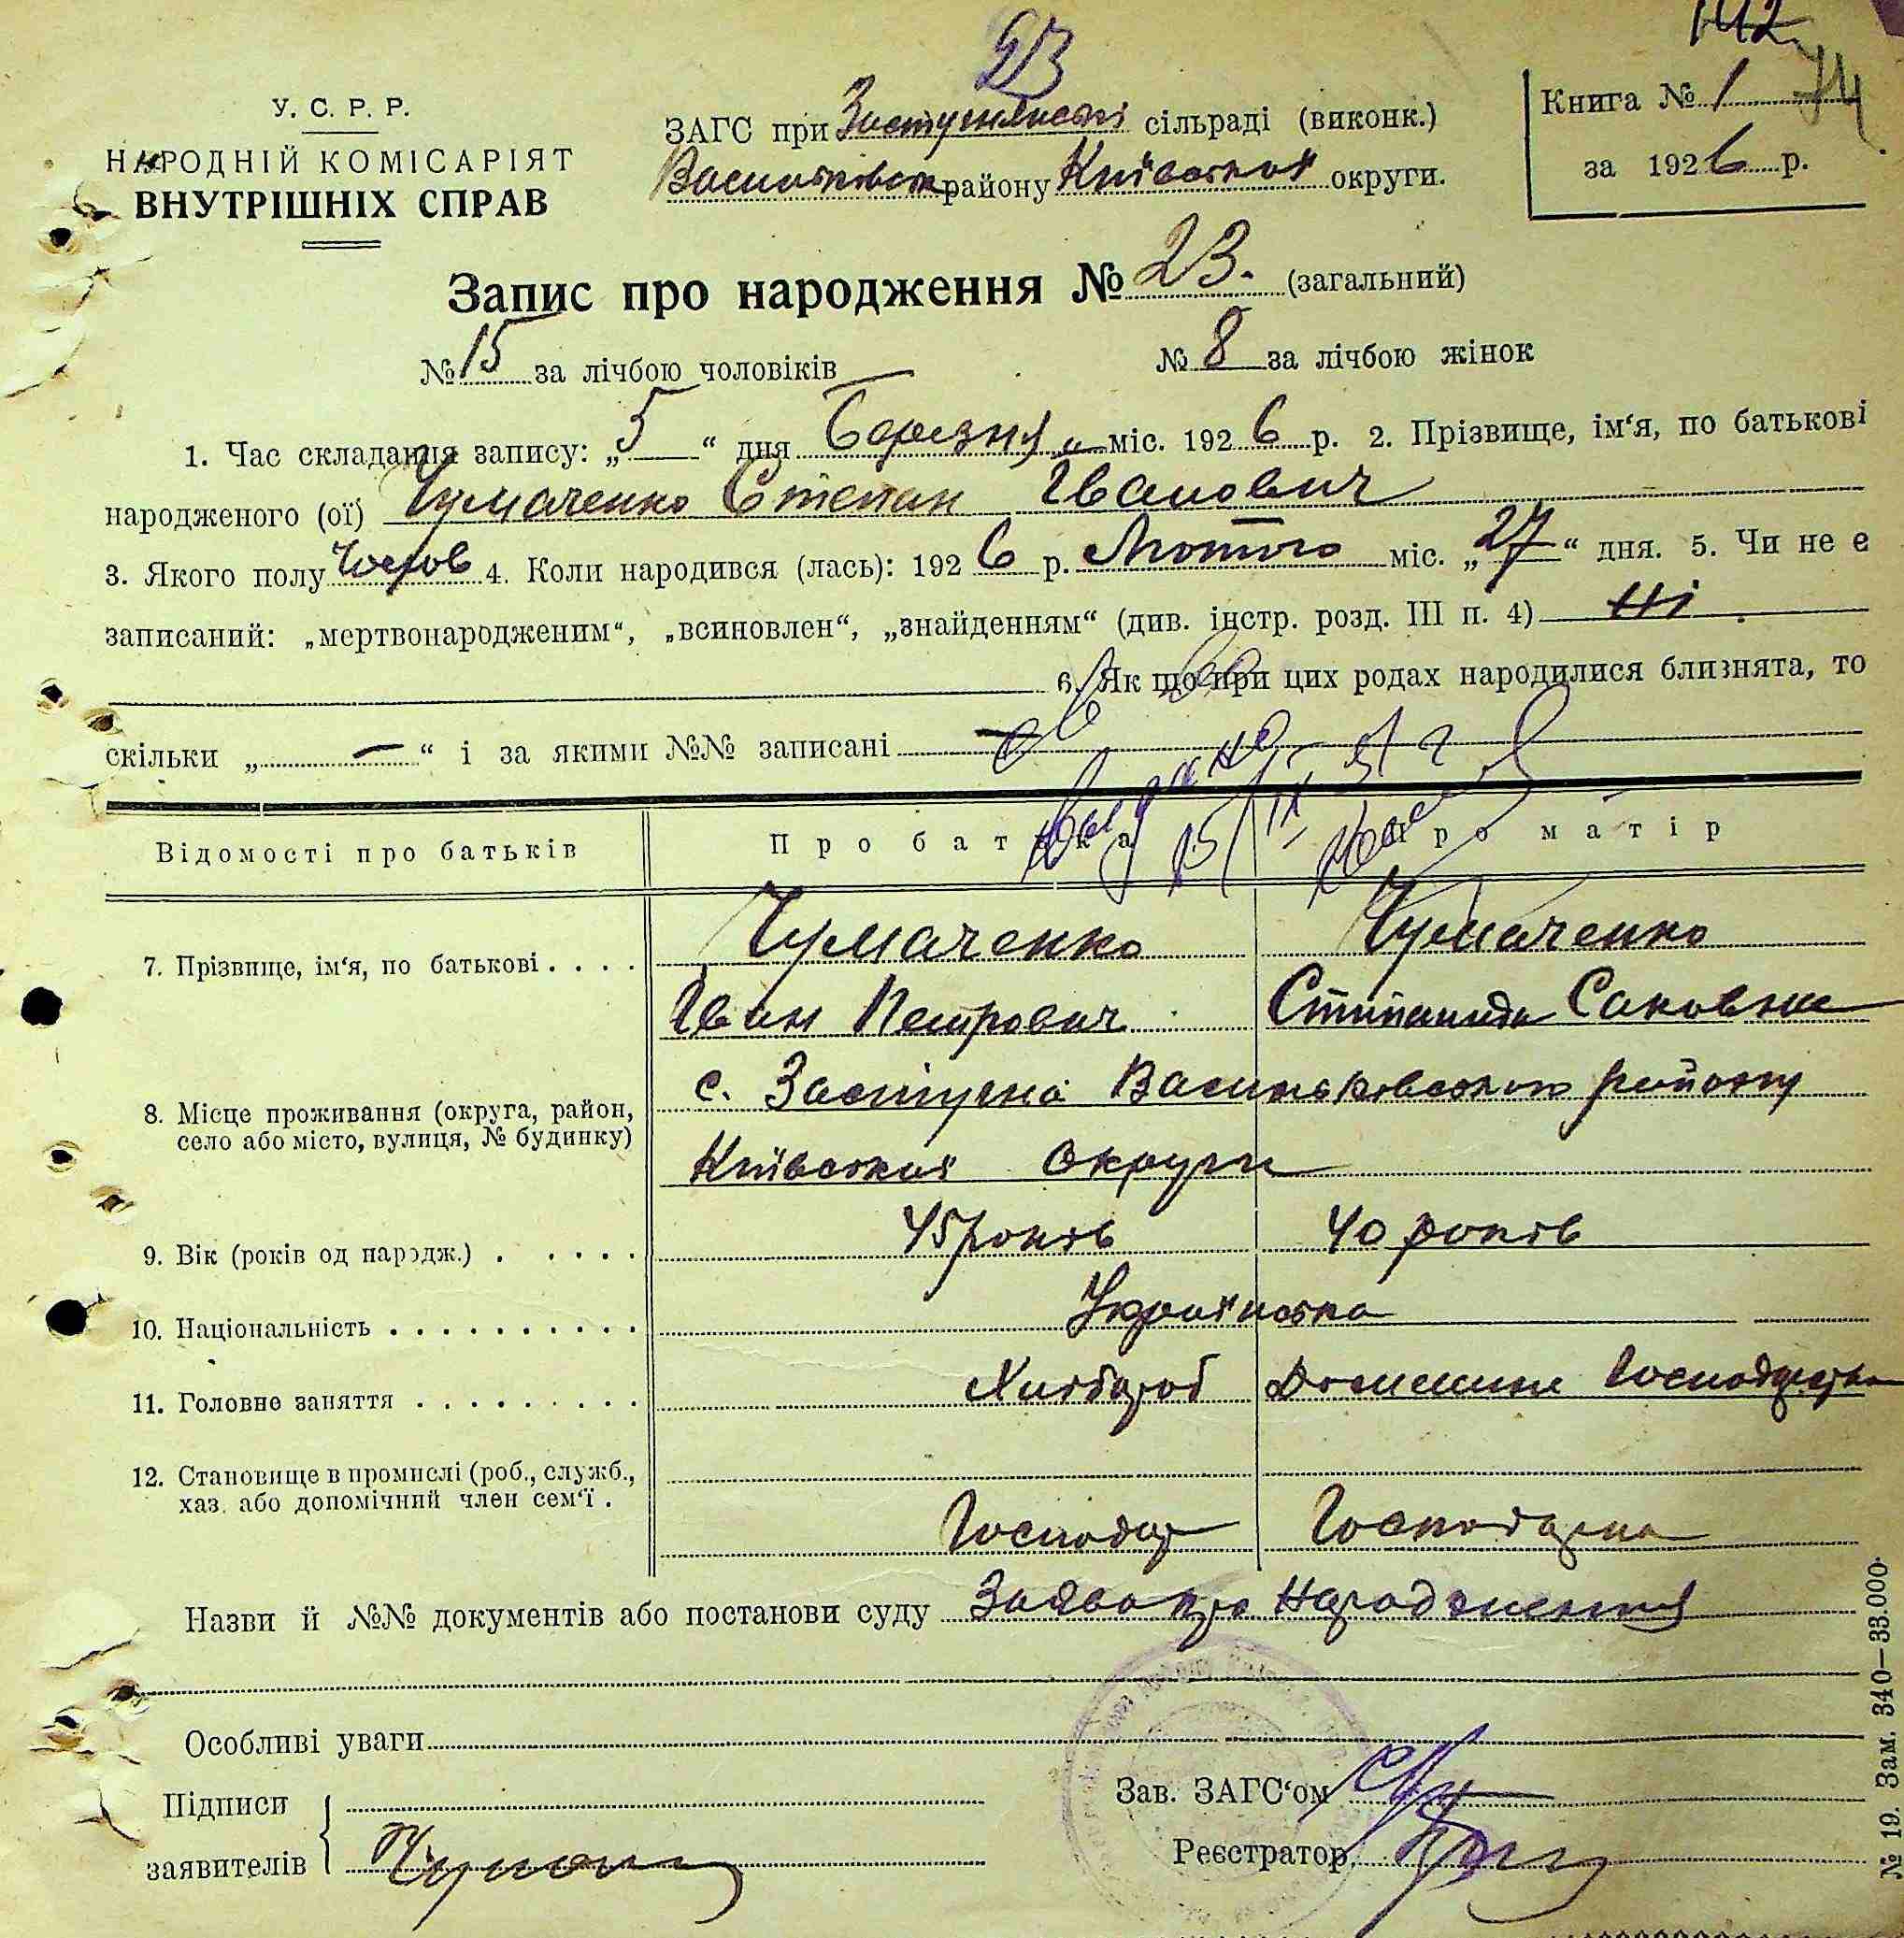 142
23
74
У. С. Р. Р.
НАРОДНІЙ КОМІСАРІЯТ
ВНУТРІШНІХ СПРАВ
ЗАГС при Застугнянскі сільраді (виконк.)
Васильковськ району Київської округи.
Книга № 1
за 1926 р.
Запис про народження № 23. (загальний)
№ 15 за лічбою чоловіків № 8 за лічбою жінок
1. Час складання запису: „5“ дня Березня міс. 1926 р. 2. Прізвище, ім‘я, по батькові
народженого (ої) Чумаченко Степан Іванович
3. Якого полу Чолов 4. Коли народився (лась): 1926 р. Лютого міс. „27“ дня. 5. Чи не е
записаний: „мертвонародженим“, „всиновлен“, „знайденням“ (див. інстр. розд. III п. 4) Ні.
6. Як що при цих родах народилися близнята, то
скільки „—“ і за якими №№ записані —
15/IX
Відомості про батьків Про батька Про матір
7. Прізвище, ім‘я, по батькові . . . . Чумаченко Чумаченко
Іван Петрович Степанида Саковна
8. Місце проживання (округа, район, село або місто, вулиця, № будинку) с. Застугна Васильковського району
Київської Округи
9. Вік (років од народж.) . . . . . 45 років 40 років
10. Національність . . . . . . . . . . Українська
11. Головне заняття . . . . . . . . . Хлібороб Домашнє Господарство
12. Становище в промислі (роб., служб.,
хаз. або допомічний член сем‘ї . Господар Господарка
Назви й №№ документів або постанови суду Заява про Народження
Особливі уваги
Підписи
заявителів
Зав. ЗАГС‘ом
Реєстратор
№ 19. Зам. 340—33.000.